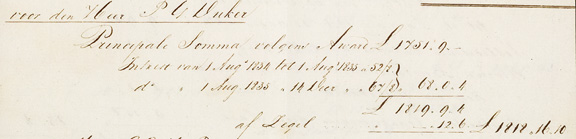 voor den Heer P G Duker
Principale Somma volgens Award £ 1751.9.-
Intrest van 1 Augt 1834 tot 1 Augt 1835 . 52/2
do " 1 Aug. 1835 " 14 Decr . 67/8 68.0.4
£ 1819.9.4
af Zegel " 12.6 £ 1818.16.10